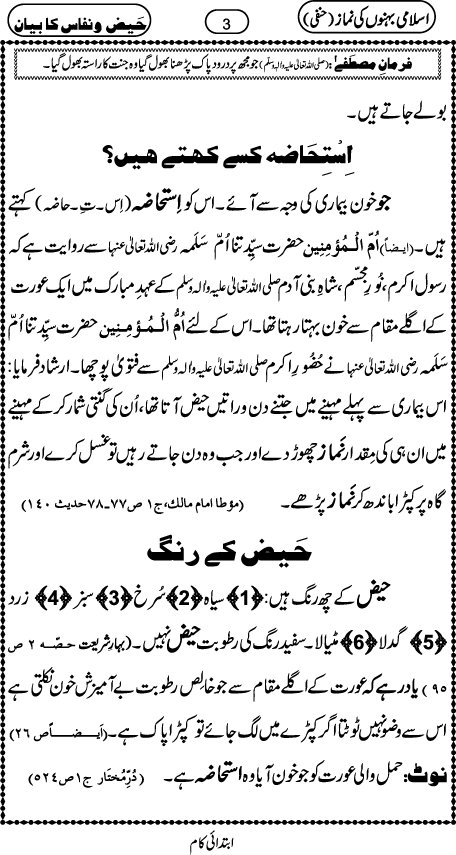 اسلامی بہنوں کی نماز (حنفی)
3
حَیض و نفاس کا بیان
فرمانِ مصطفےٰ: (صلی اللہ تعالیٰ علیہ والہ وسلم) جو مجھ پر درود پاک پڑھنا بھول گیا وہ جنت کا راستہ بھول گیا۔
بولے جاتے ہیں۔
اِسْتِحَاضہ کسے کھتے ھیں؟
جو خون بیماری کی وجہ سے آئے۔ اس کو اِستحاضہ (اِس۔تِ۔حاضہ) کہتے
ہیں۔ (ایضاً) اُمُّ الْمُؤمِنِین حضرت سیِّدتنا اُمِّ سَلَمہ رضی اللہ تعالیٰ عنہا سے روایت ہے کہ
رسول اکرم، نُورِ مجسّم، شاہِ بنی آدم صلی اللہ تعالیٰ علیہ والہ وسلم کے عہدِ مبارک میں ایک عورت
کے اگلے مقام سے خون بہتا رہتا تھا۔ اس کے لئے اُمُّ الْمُؤمِنِین حضرت سیِّدتنا اُمِّ
سَلَمہ رضی اللہ تعالیٰ عنہا نے حُضُورِ اکرم صلی اللہ تعالیٰ علیہ والہ وسلم سے فتویٰ پوچھا۔ ارشاد فرمایا:
اس بیماری سے پہلے مہینے میں جتنے دن و راتیں حیض آتا تھا، اُن کی گنتی شمار کر کے مہینے
میں ان ہی کی مِقدار نَماز چھوڑ دے اور جب وہ دن جاتے رہیں تو غسل کرے اور شرم
گاہ پر کپڑا باندھ کر نَماز پڑھے۔ (مؤطا امام مالك، ج١ ص٧٧۔٧٨حدیث ١٤٠)
حَیض کے رنگ
حیض کے چھ رنگ ہیں: ﴿1﴾ سیاہ ﴿2﴾ سُرخ ﴿3﴾ سبز ﴿4﴾ زرد
﴿5﴾ گدلا ﴿6﴾ مٹیالا۔ سفید رنگ کی رطوبت حیض نہیں۔ (بہارِ شریعت حصّہ ٢ ص
٩٥) یاد رہے کہ عورت کے اگلے مقام سے جو خالِص رطوبت بے آمیزش خون نکلتی ہے
اس سے وضو نہیں ٹوٹتا اگر کپڑے میں لگ جائے تو کپڑا پاک ہے۔ (اَیضاً ص ٢٦)
نوٹ: حمل والی عورت کو جو خون آیا وہ استحاضہ ہے۔ (دُرِّمُختَار ج١ ص٥٢٤)
ابتدائی کام